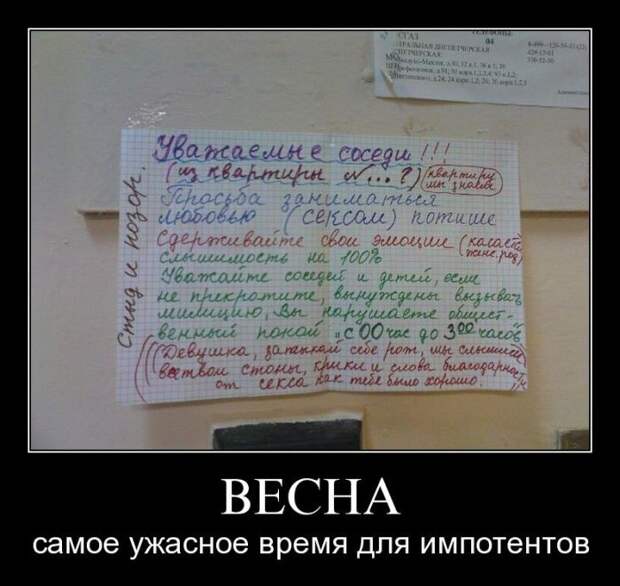 ТЕЛЕФОНЫ
04
Уважаемые соседи!!!
(из квартиры №...?) (квартиру мы знаем)
Просьба заниматься
любовью (сексом) потише
Сдерживайте свои эмоции (касается женс. род)
слышимость на 100%
Уважайте соседей и детей, если
не прекратите, вынуждены вызывать
милицию, Вы нарушаете общест-
венный покой с 00 час до 3 00 часов
Девушка, заткни себе рот, мы слышим
все твои стоны, крики и слова благодарности
от секса как тебе было хорошо.
Стыд и позор.
ВЕСНА
самое ужасное время для импотентов